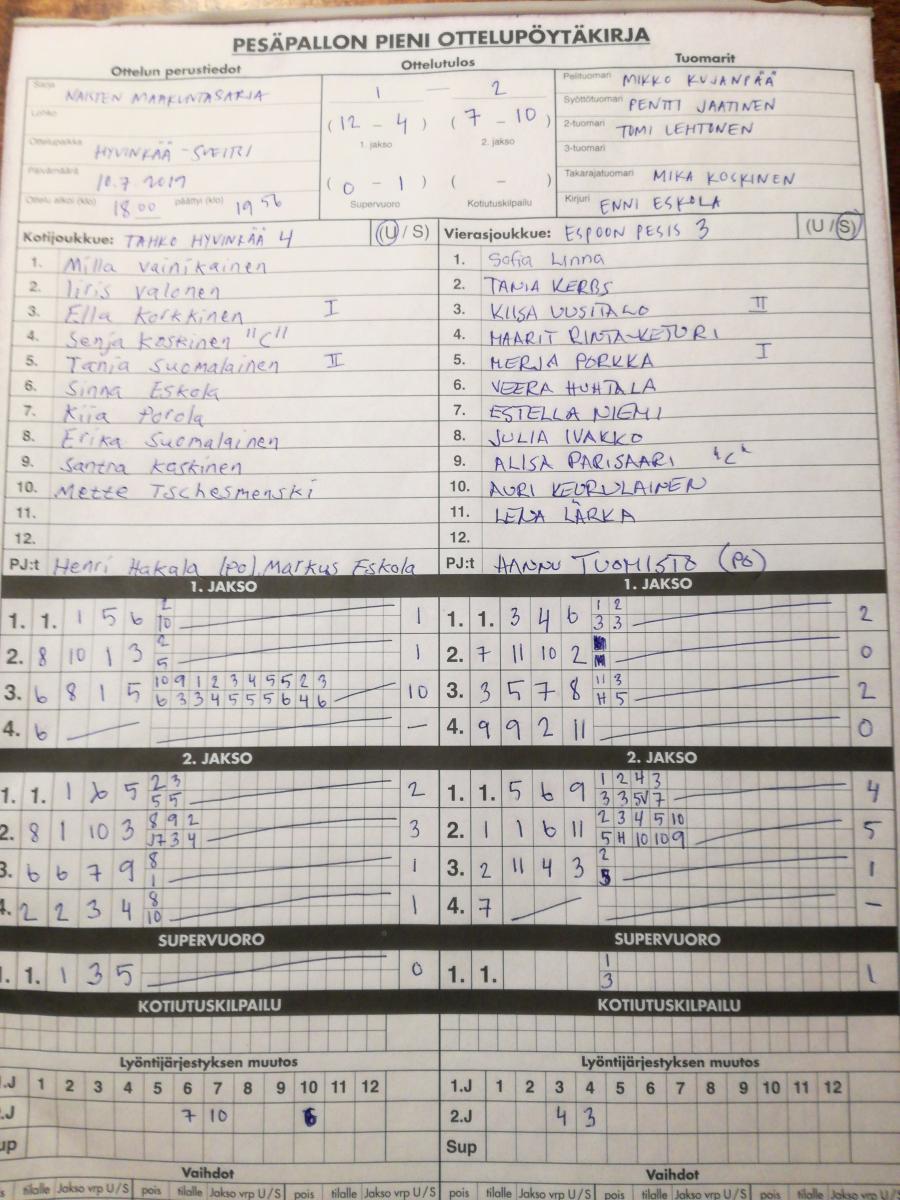 PESÄPALLON PIENI OTTELUPÖYTÄKIRJA
Ottelun perustiedot
Sarja NAISTEN MAAKUNTASARJA
Lohko
Ottelupaikka HYVINKÄÄ - SVEITSI
Päivämäärä 10.7.2019
Ottelu alkoi (klo) 18 00 päättyi (klo) 19 56
Ottelutulos
1 — 2
(12 – 4) (7 – 10)
1. jakso 2. jakso
(0 – 1) ( – )
Supervuoro Kotiutuskilpailu
Tuomarit
Pelituomari MIKKO KUJANPÄÄ
Syöttötuomari PENTTI JAATINEN
2-tuomari TOMI LEHTONEN
3-tuomari
Takarajatuomari MIKA KOSKINEN
Kirjuri ENNI ESKOLA
Kotijoukkue: TAHKO HYVINKÄÄ 4 (U / S)
1. Milla Vainikainen
2. Iiris Valonen
3. Ella Korkkinen I
4. Senja Koskinen "C"
5. Tanja Suomalainen II
6. Sinna Eskola
7. Kiia Porola
8. Erika Suomalainen
9. Santra Koskinen
10. Mette Tschesmenski
11.
12.
PJ:t Henri Hakala (PO), Markus Eskola
Vierasjoukkue: ESPOON PESIS 3 (U / S)
1. Sofia Linna
2. TANIA KERBS
3. KIISA UUSITALO II
4. MAARIT RINTA-KETURI
5. MERJA PORKKA I
6. VEERA HUHTALA
7. ESTELLA NIEMI
8. JULIA IVAKKO
9. ALISA PARISAARI "C"
10. AURI KEURULAINEN
11. LENA LÄRKA
12.
PJ:t HANNU TUOMISTO (PO)
1. JAKSO
1. 1. 1 5 6 2 1
10
2. 8 10 1 3 2 1
5
3. 6 8 1 5 10 9 1 2 3 4 5 5 2 3 10
6 3 3 4 5 5 5 6 4 6
4. 6 —
1. JAKSO
1. 1. 3 4 6 1 2 2
3 3
2. 7 11 10 2 0
3. 3 5 7 8 11 3 2
H 5
4. 9 9 2 11 0
2. JAKSO
1. 1. 1 6 5 2 3 2
5 5
2. 8 1 10 3 8 9 2 3
J7 3 4
3. 6 6 7 9 8 1
1
4. 2 2 3 4 8 1
10
2. JAKSO
1. 1. 5 6 9 1 2 4 3 4
3 3 5V 7
2. 1 1 6 11 2 3 4 5 10 5
5 H 10 10 9
3. 2 11 4 3 2 1
5
4. 7 –
SUPERVUORO
1. 1. 1 3 5 0
SUPERVUORO
1. 1. 1 1
3
KOTIUTUSKILPAILU
KOTIUTUSKILPAILU
Lyöntijärjestyksen muutos
1.J 1 2 3 4 5 6 7 8 9 10 11 12
2.J 7 10 6
Sup
Lyöntijärjestyksen muutos
1.J 1 2 3 4 5 6 7 8 9 10 11 12
2.J 4 3
Sup
Vaihdot
pois tilalle Jakso vrp U/S pois tilalle Jakso vrp U/S pois tilalle Jakso vrp U/S
Vaihdot
pois tilalle Jakso vrp U/S pois tilalle Jakso vrp U/S pois tilalle Jakso vrp U/S